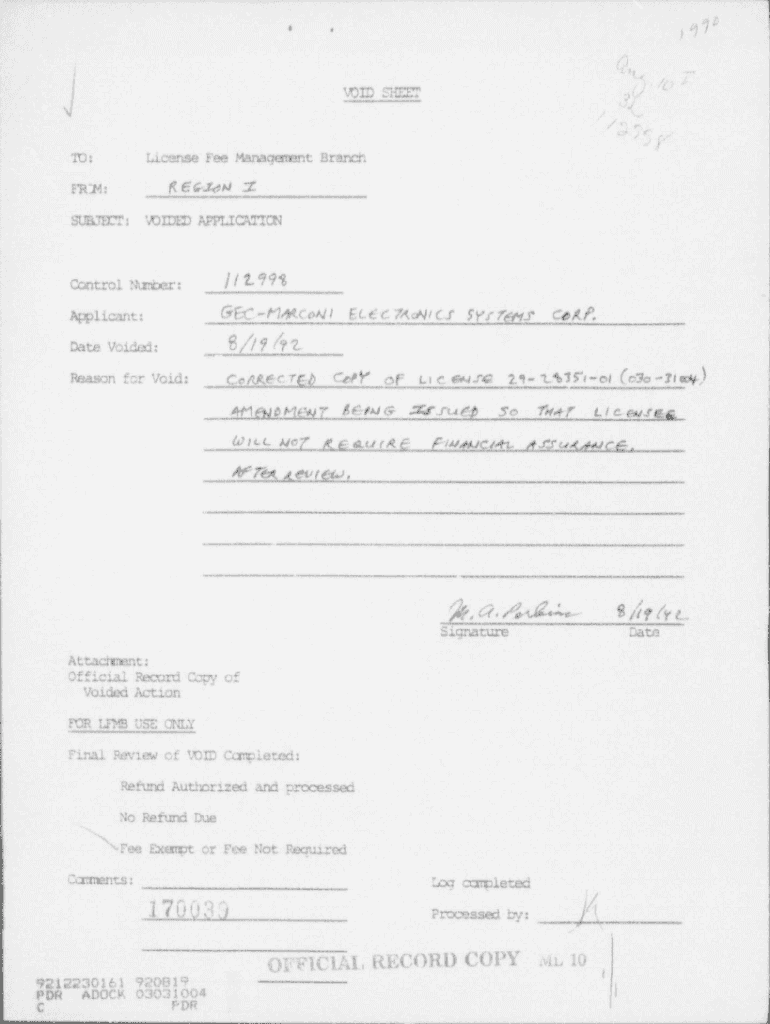 1990
Aug 10 I
112998
VOID SHEET
TO: License Fee Management Branch
FROM: REGION I
SUBJECT: VOIDED APPLICATION
Control Number: 112998
Applicant: GEC-MARCONI ELECTRONICS SYSTEMS CORP.
Date Voided: 8/19/92
Reason for Void: CORRECTED COPY OF LICENSE 29-28351-01 (030-31004)
AMENDMENT BEING ISSUED SO THAT LICENSEE
WILL NOT REQUIRE FINANCIAL ASSURANCE.
AFTER REVIEW.
M. A. Perkins 8/19/92
Signature Date
Attachment:
Official Record Copy of
Voided Action
FOR LFMB USE ONLY
Final Review of VOID Completed:
Refund Authorized and processed
No Refund Due
Fee Exempt or Fee Not Required
Comments: Log completed
170039 Processed by:
OFFICIAL RECORD COPY ML 10
9212230161 920819
PDR ADOCK 03031004
C PDR